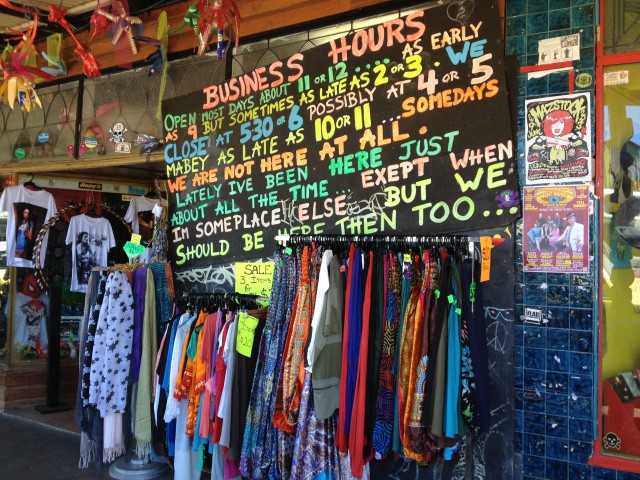 BUSINESS HOURS
OPEN MOST DAYS ABOUT 11 OR 12..... AS EARLY
AS 9 BUT SOMETIMES AS LATE AS 2 OR 3.. WE
CLOSE AT 530 OR 6 POSSIBLY AT 4 OR 5
MABEY AS LATE AS 10 OR 11.... SOMEDAYS
WE ARE NOT HERE AT ALL.
LATELY I'VE BEEN HERE JUST
ABOUT ALL THE TIME... EXEPT WHEN
IM SOMEPLACE ELSE BUT WE
SHOULD BE HERE THEN TOO...
SALE
3 ITEMS